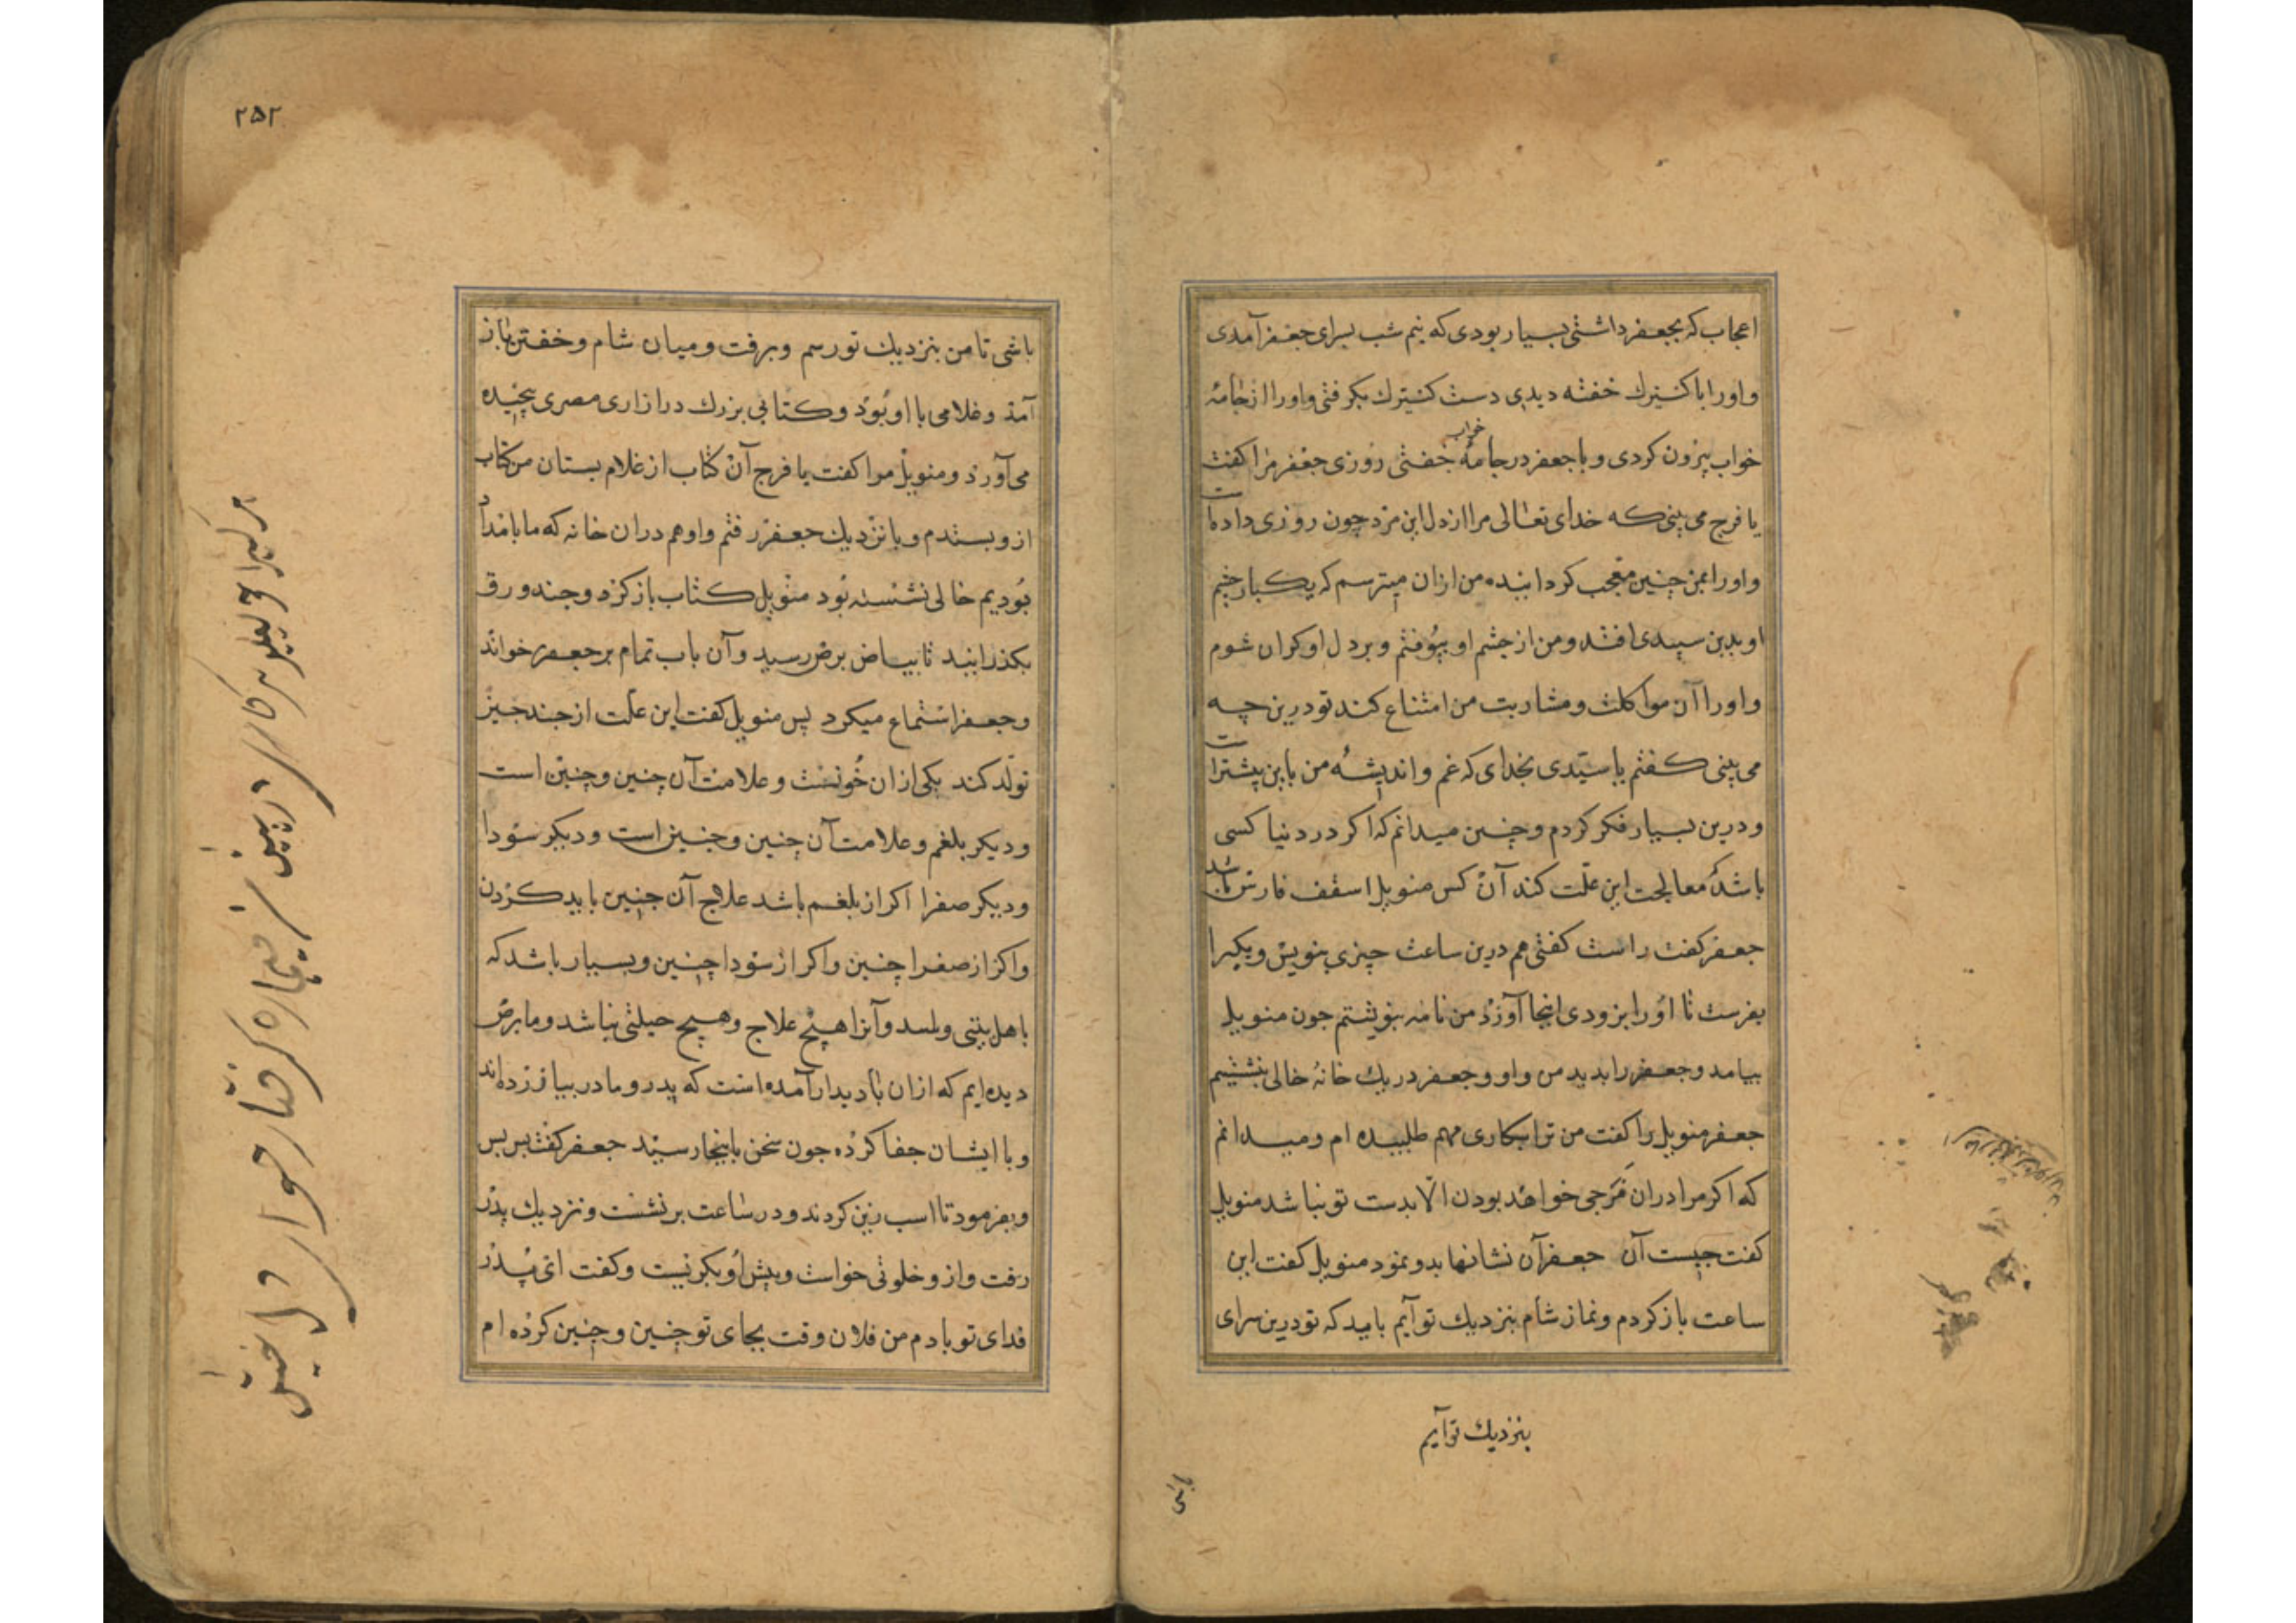 اعجاب که بجعفر داشتی بسیار بودی که نیم شب بسرای جعفر آمدی
و اورا با کنیزک خفته دیدی دست کنیزک بگرفتی و اورا از جامهٔ
خواب بیرون کردی و با جعفر در جامهٔ خواب خفتی روزی جعفر مرا گفت
یا فرج می بینی که خدای تعالی مرا از دل این مرد چون روزی داده است
و اورا بمن چنین متعجب کردانیده من ازان میترسم که یکبار چشم
او بدین سپیدی افتد و من از چشم او بیوفتم و بر دل او کران شوم
و اورا آن مواکلت و مشاربت من امتناع کند تو درین چه
می بینی گفتم یا سیدی بخدای که غم و اندیشهٔ من باین بیشتر است
و درین بسیار فکر کردم و چنین میدانم که اگر در دنیا کسی
باشد که معالجت این علت کند آن کس منویل اسقف فارس باشد
جعفر گفت راست گفتی هم درین ساعت چیزی بنویس و یکیرا
بفرست تا اورا بزودی اینجا آورد من نامه بنوشتم جون منویل
بیامد و جعفر را بدید من و او و جعفر در یک خانهٔ خالی بنشستیم
جعفر منویل را گفت من ترا بکاری مهم طلبیده ام و میدانم
که اگر مرا دران فرجی خواهد بودن الا بدست تو نباشد منویل
گفت چیست آن جعفر آن نشانها بدو نمود منویل گفت این
ساعت باز کردم و نماز شام بنزدیک تو آیم باید که تو درین سرای
بنزدیک تو آیم
باشی
۲۵۲
باشی تا من بنزدیک تو رسم و برفت و میان شام و خفتن باز
آمد و غلامی با او بود و کتابی بزرک در ازاری مصری پیچیده
می آورد و منویل مرا گفت یا فرج آن کتاب از غلام بستان من کتاب
ازو بستدم و با نزدیک جعفر رفتم و او هم دران خانه که ما بامداد
بودیم خالی نشسته بود منویل کتاب باز کرد و چند ورق
بکذرانید تا ببیاض برص رسید و آن باب تمام بر جعفر خواند
و جعفر استماع میکرد پس منویل گفت این علت از جند جیز
تولد کند یکی ازان خونست و علامت آن چنین و چنین است
و دیکر بلغم و علامت آن چنین و جنین است و دیکر سودا
و دیکر صفرا اکر از بلغم باشد علاج آن جنین باید کردن
و اکر از صفرا چنین و اکر از سودا چنین و بسیار باشد که
باهل بیتی و آنرا هیچ علاج و هیچ حیلتی نباشد و ما برص
دیده ایم که ازان بادیدار آمده است که پدر و مادر بیازرده اند
و با ایشان جفا کرده جون سخن باینجا رسید جعفر گفت بس بس
و بفرمود تا اسب زین کردند و در ساعت برنشست و نزدیک پدر
رفت و ازو خلوتی خواست و پیش او بگریست و گفت ای پدر
فدای تو بادم من فلان وقت بجای تو چنین و چنین کرده ام